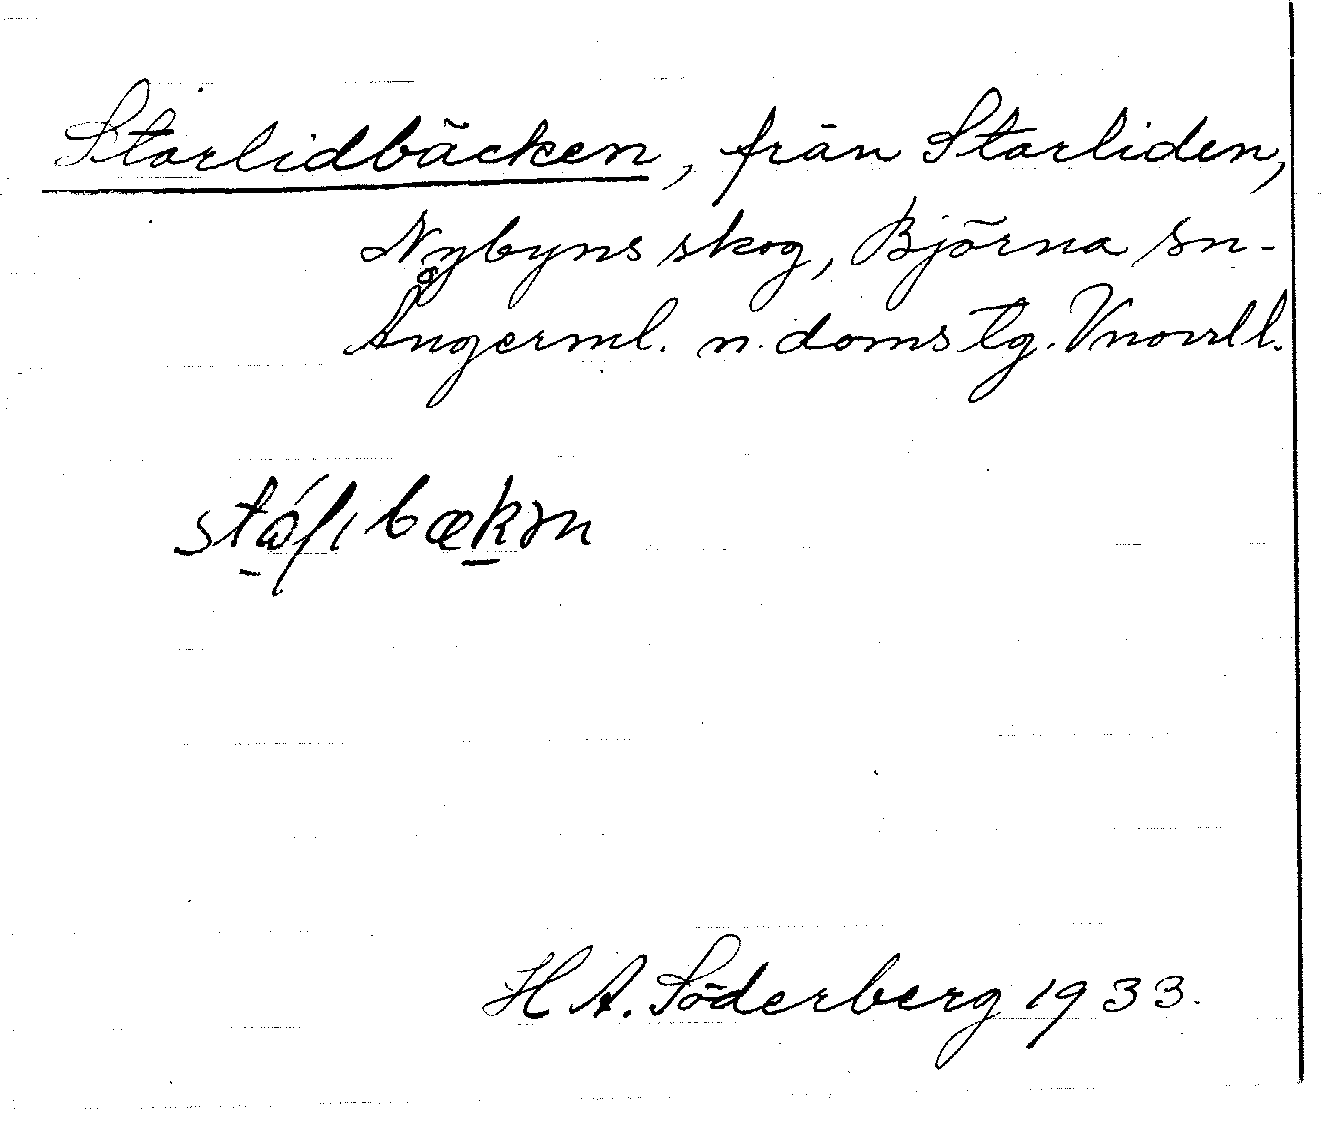 Storlidbäcken, från Storliden,
Nybyns skog, Björna sn-
Ångerml. n. doms tg. Vnorrl.
H A. Söderberg 1933.